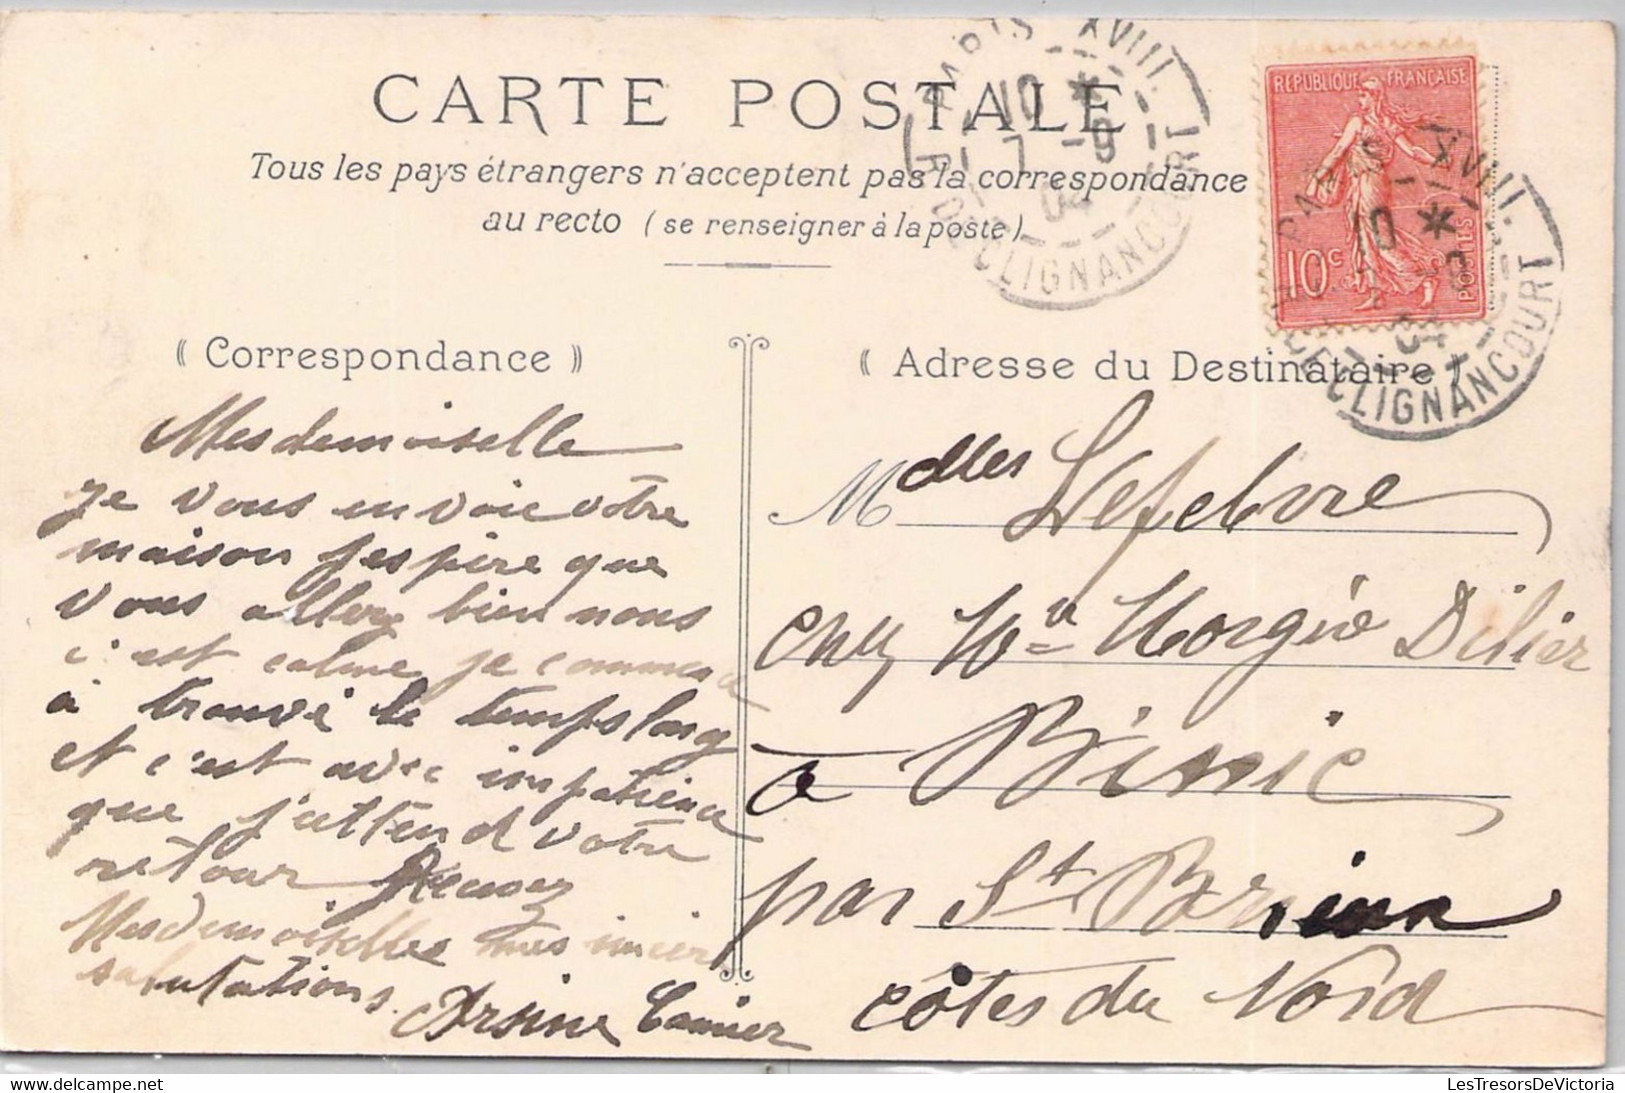 CARTE POSTALE
Tous les pays étrangers n'acceptent pas la correspondance
au recto (se renseigner à la poste)
PARIS XVIII.
10 *
7 -9
04
R. DE CLIGNANCOURT
RÉPUBLIQUE FRANÇAISE
10c
POSTES
PARIS XVIII.
10 *
04
R. DE CLIGNANCOURT
« Correspondance »
Mesdemoiselle
je vous envoie votre
maison j'espère que
vous allez bien nous
c'est calme je commence
à trouvé le temps long
et c'est avec impatience
que j'attend votre
retour Recevez
Mesdemoiselles mes sincer
salutations.
Arsène
« Adresse du Destinataire »
Mdelles Lefebvre
chez Mme Vve
à Binic
par St Brieuc
Côtes du Nord
LesTresorsDeVictoria